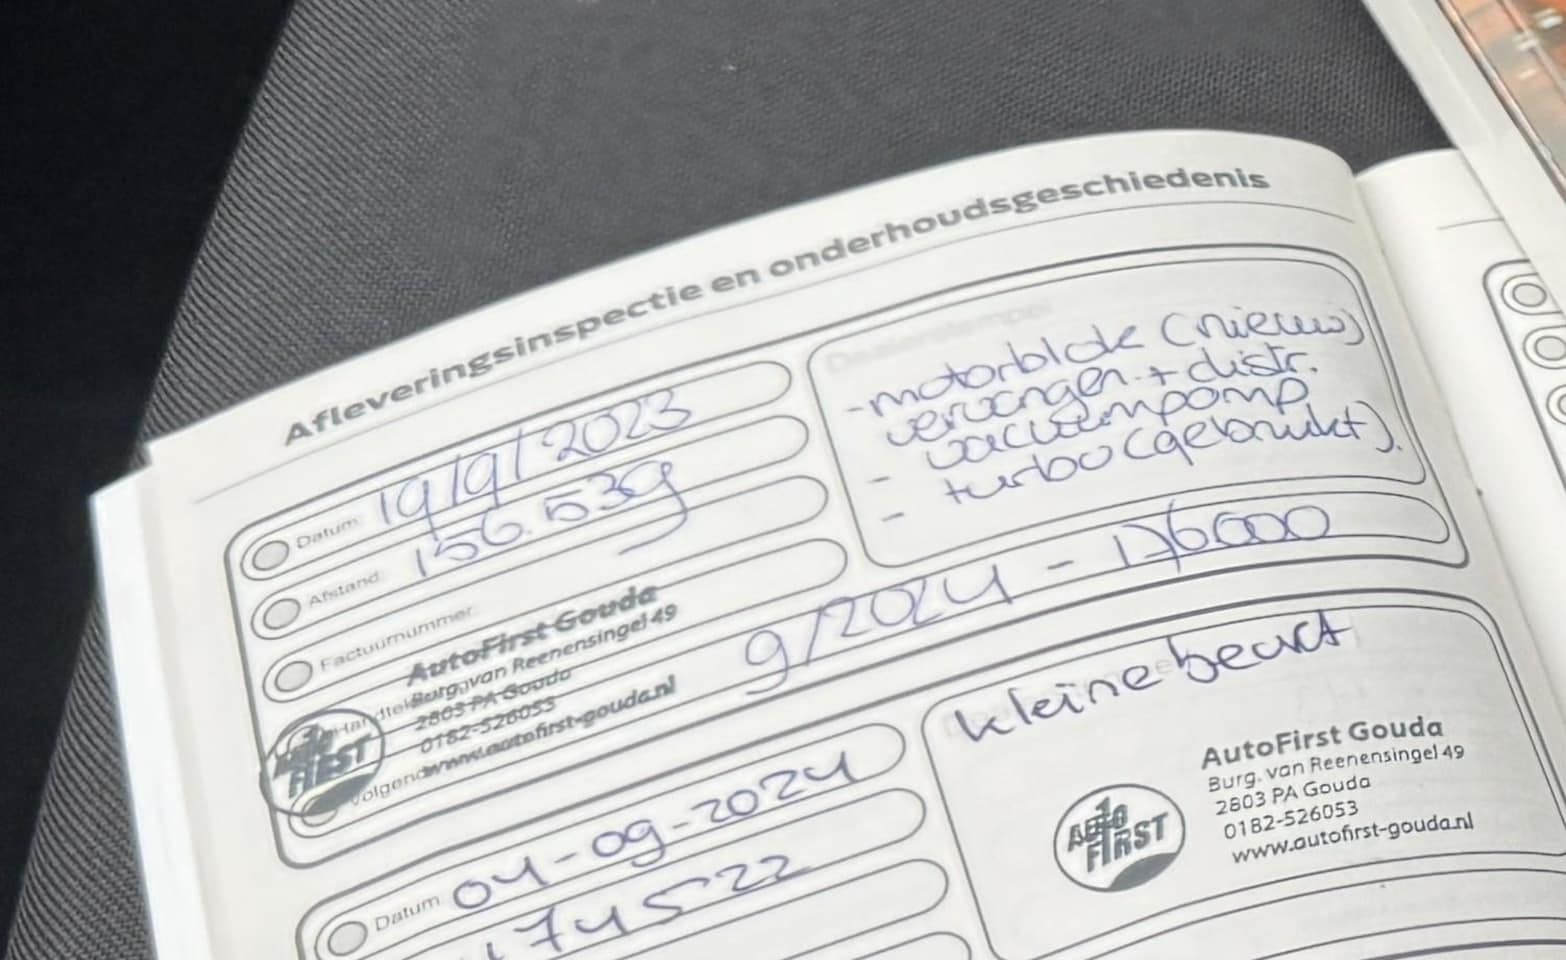 Afleveringsinspectie en onderhoudsgeschiedenis
Datum 19/9/2023
Afstand 156.539
Factuurnummer
AutoFirst Gouda
Burg. van Reenensingel 49
2803 PA Gouda
0182-526053
www.autofirst-gouda.nl
AUTO FIRST
Volgende
9/2024 - 176000
- motorblok (nieuw)
vervangen + distr.
- vacuumpomp
- turbo (gebruikt).
Datum 04-09-2024
174522
kleine beurt
AUTO FIRST
AutoFirst Gouda
Burg. van Reenensingel 49
2803 PA Gouda
0182-526053
www.autofirst-gouda.nl